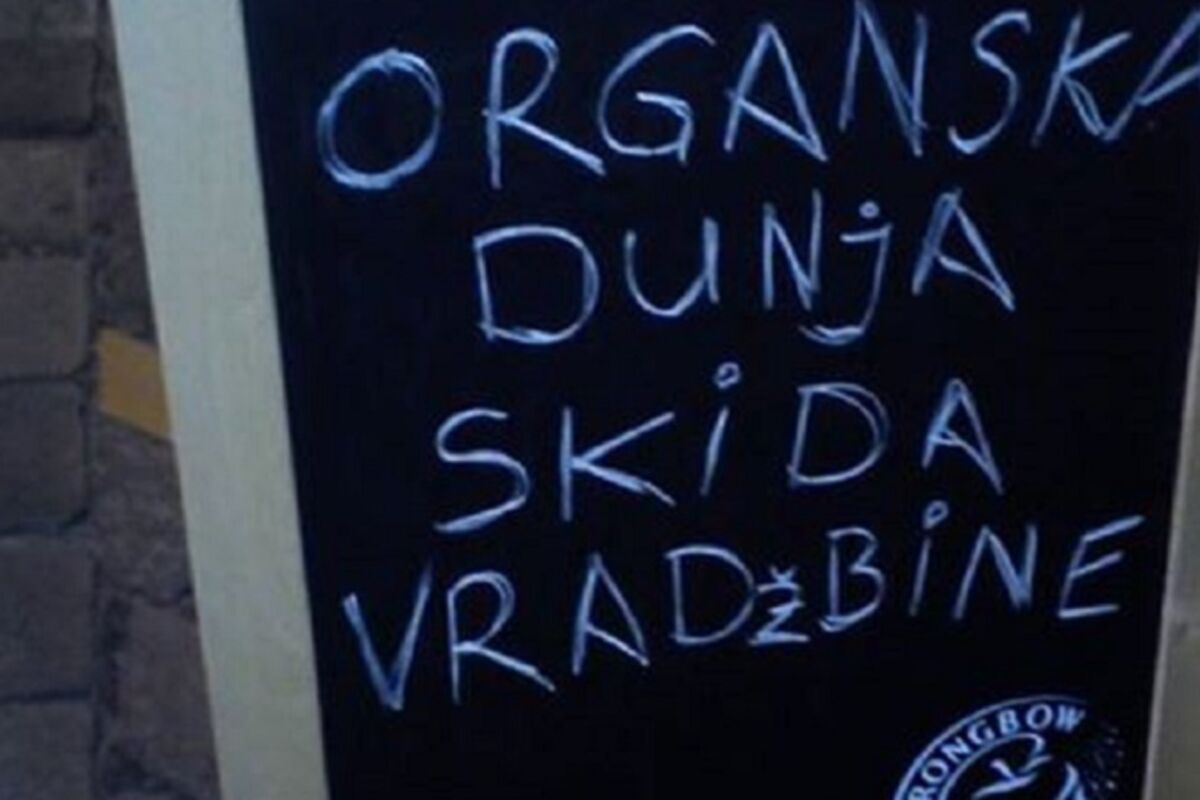 ORGANSKA
DUNjA
SKiDA
VRADžBiNE
RONGBOW